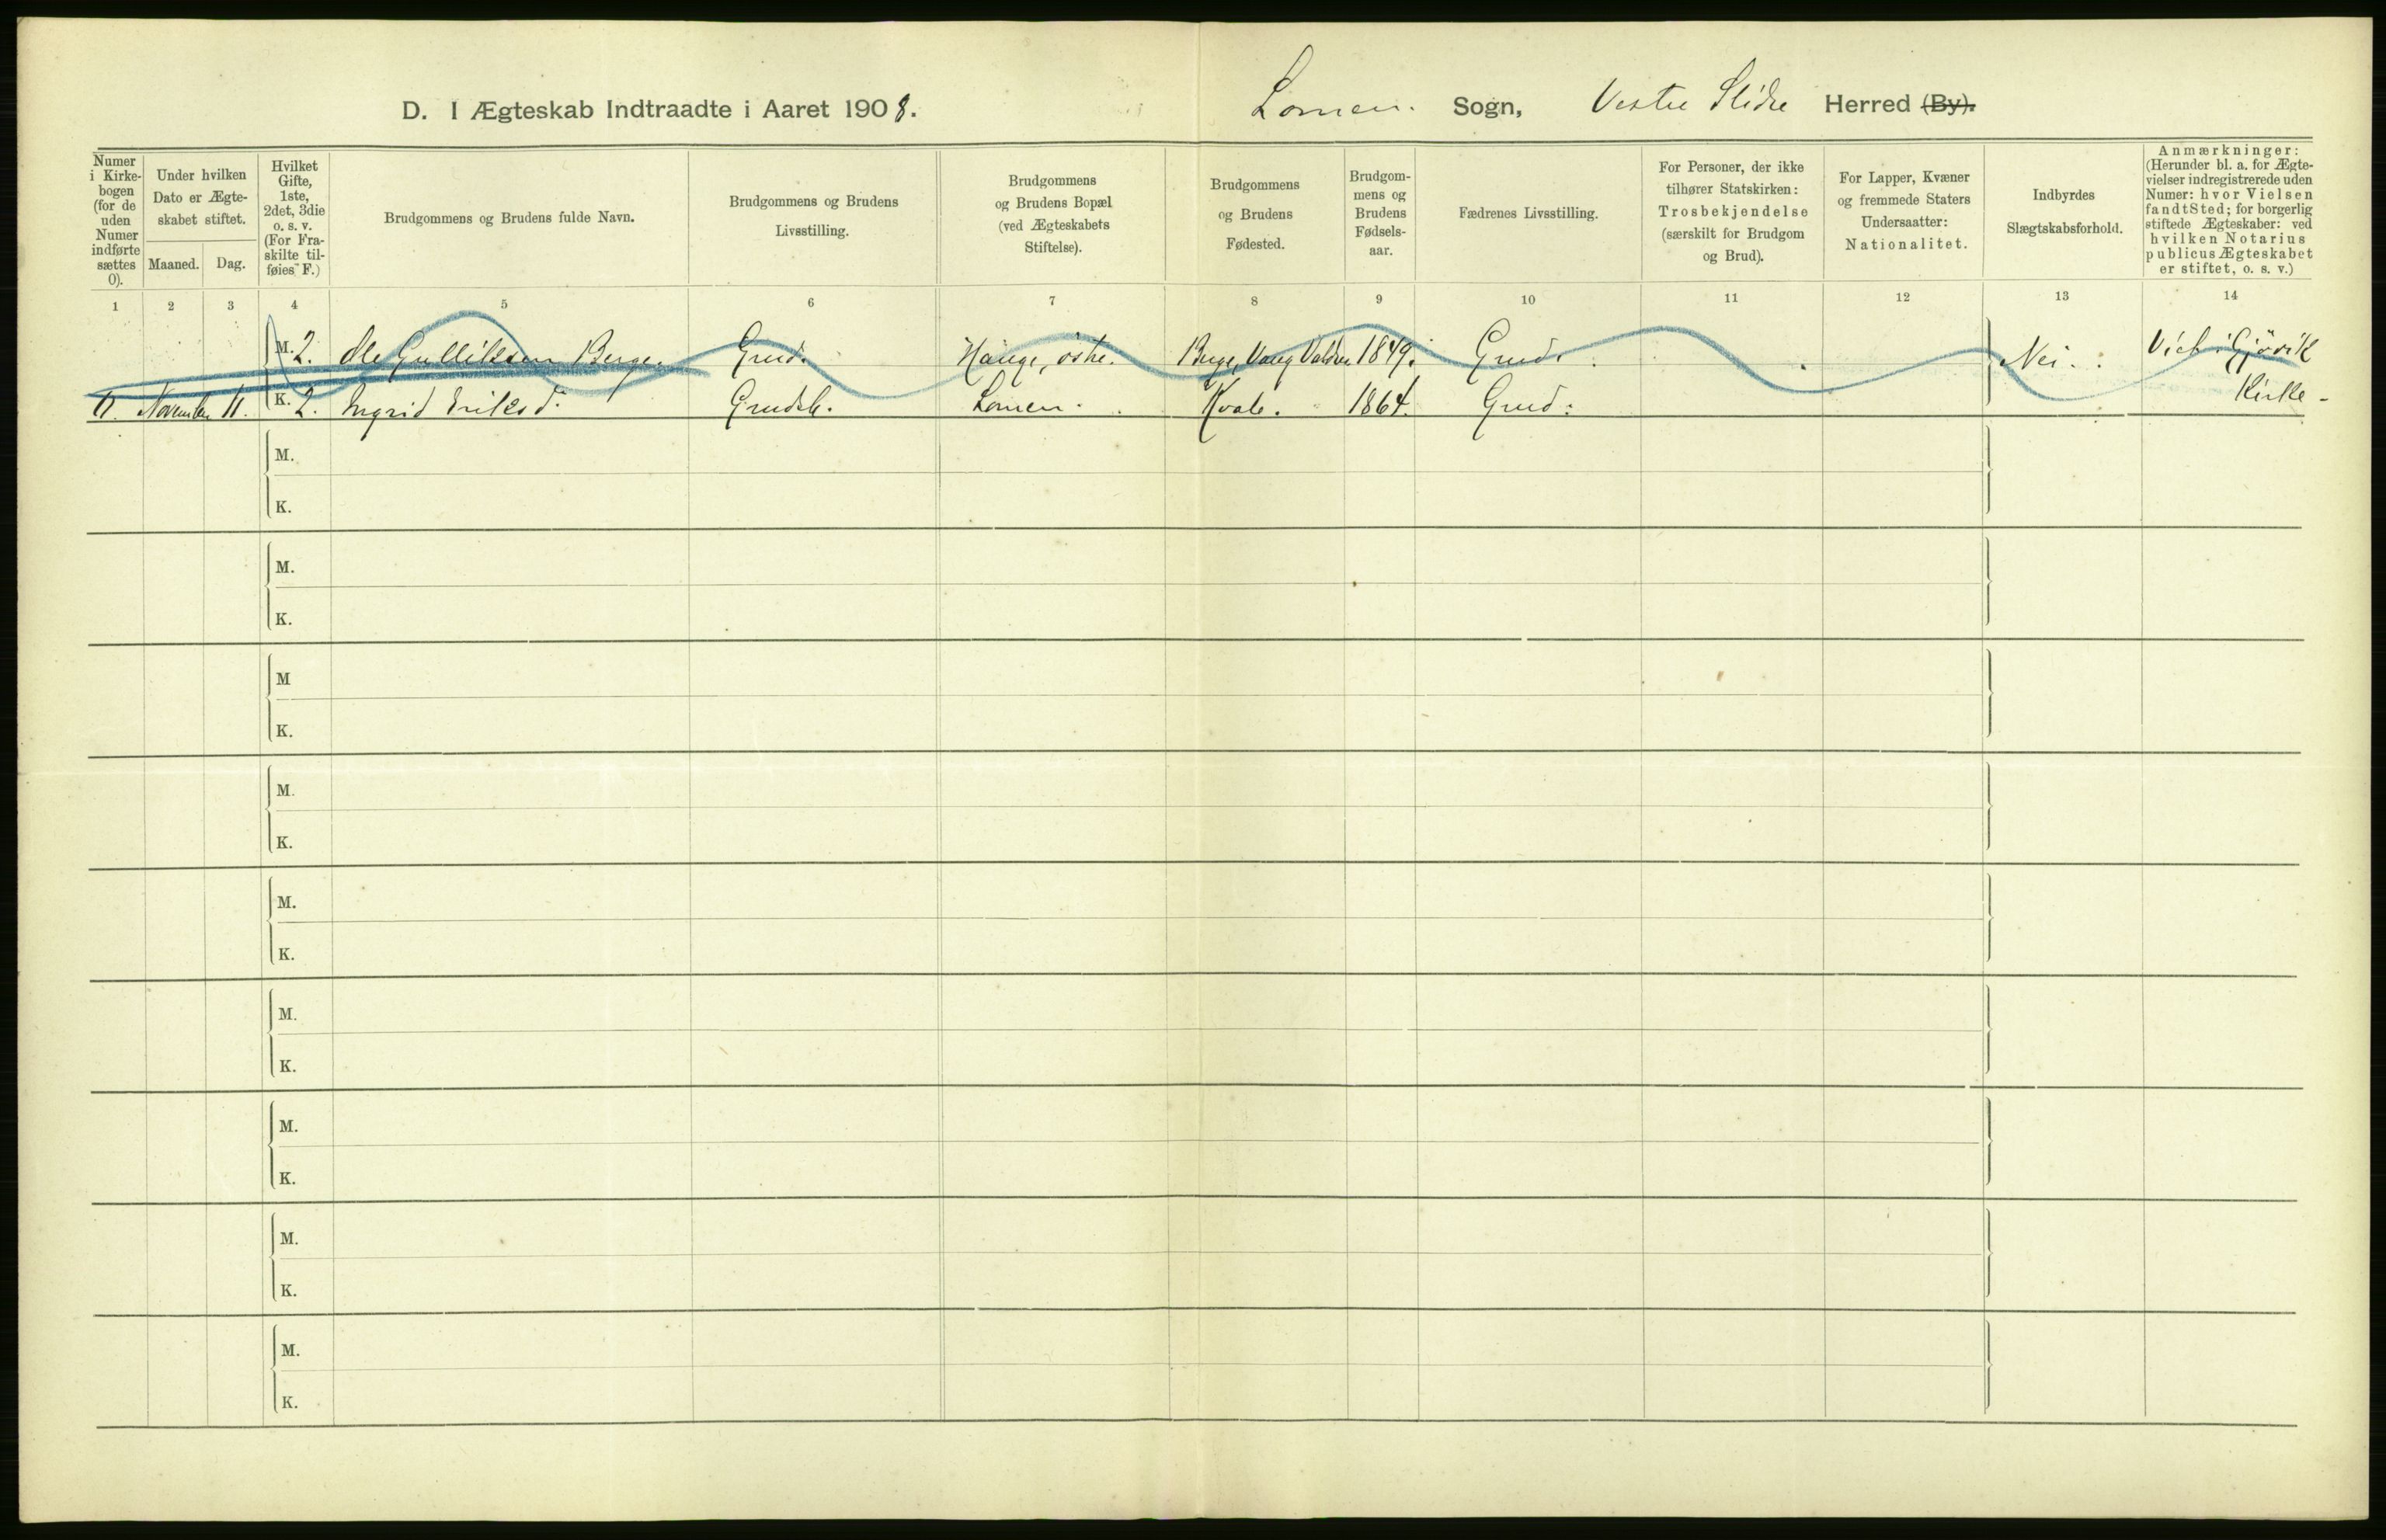 D. I Ægteskab Indtraadte i Aaret 1908.
Lomen. Sogn, Vestre Slidre Herred (By).
Numer i Kirkebogen (for de uden Numer indførte sættes 0).
Under hvilken Dato er Ægteskabet stiftet.
Maaned. Dag.
Hvilket Gifte, 1ste, 2det, 3die o. s. v. (For Fraskilte tilføies F.)
Brudgommens og Brudens fulde Navn.
Brudgommens og Brudens Livsstilling.
Brudgommens og Brudens Bopæl (ved Ægteskabets Stiftelse).
Brudgommens og Brudens Fødested.
Brudgommens og Brudens Fødselsaar.
Fædrenes Livsstilling.
For Personer, der ikke tilhører Statskirken: Trosbekjendelse (særskilt for Brudgom og Brud).
For Lapper, Kvæner og fremmede Staters Undersaatter: Nationalitet.
Indbyrdes Slægtskabsforhold.
Anmærkninger: (Herunder bl. a. for Ægtevielser indregistrerede uden Numer: hvor Vielsen fandt Sted; for borgerlig stiftede Ægteskaber: ved hvilken Notarius publicus Ægteskabet er stiftet, o. s. v.)
1 2 3 4 5 6 7 8 9 10 11 12 13 14
M. 2. Ole Gulliksen Berge. Grud. østre. Vang Valdres 1849. Grud. Nei. Viet i Gjøvik
11. November 11. K. 2. Ingrid Eriksd. Lomen. Kvale. 1864. Grud. Kirke.
M.
K.
M.
K.
M
K.
M.
K.
M.
K.
M.
K.
M.
K.
M.
K.
M.
K.